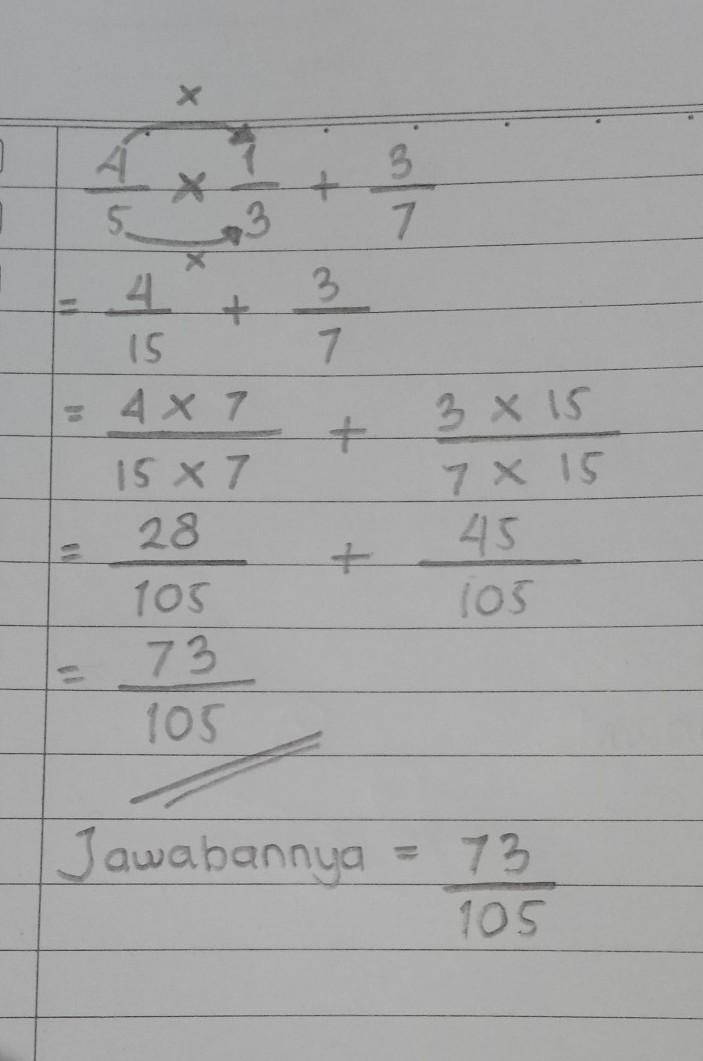 x
4/5 x 1/3 + 3/7
x
= 4/15 + 3/7
= 4 x 7/15 x 7 + 3 x 15/7 x 15
= 28/105 + 45/105
= 73/105
Jawabannya = 73/105